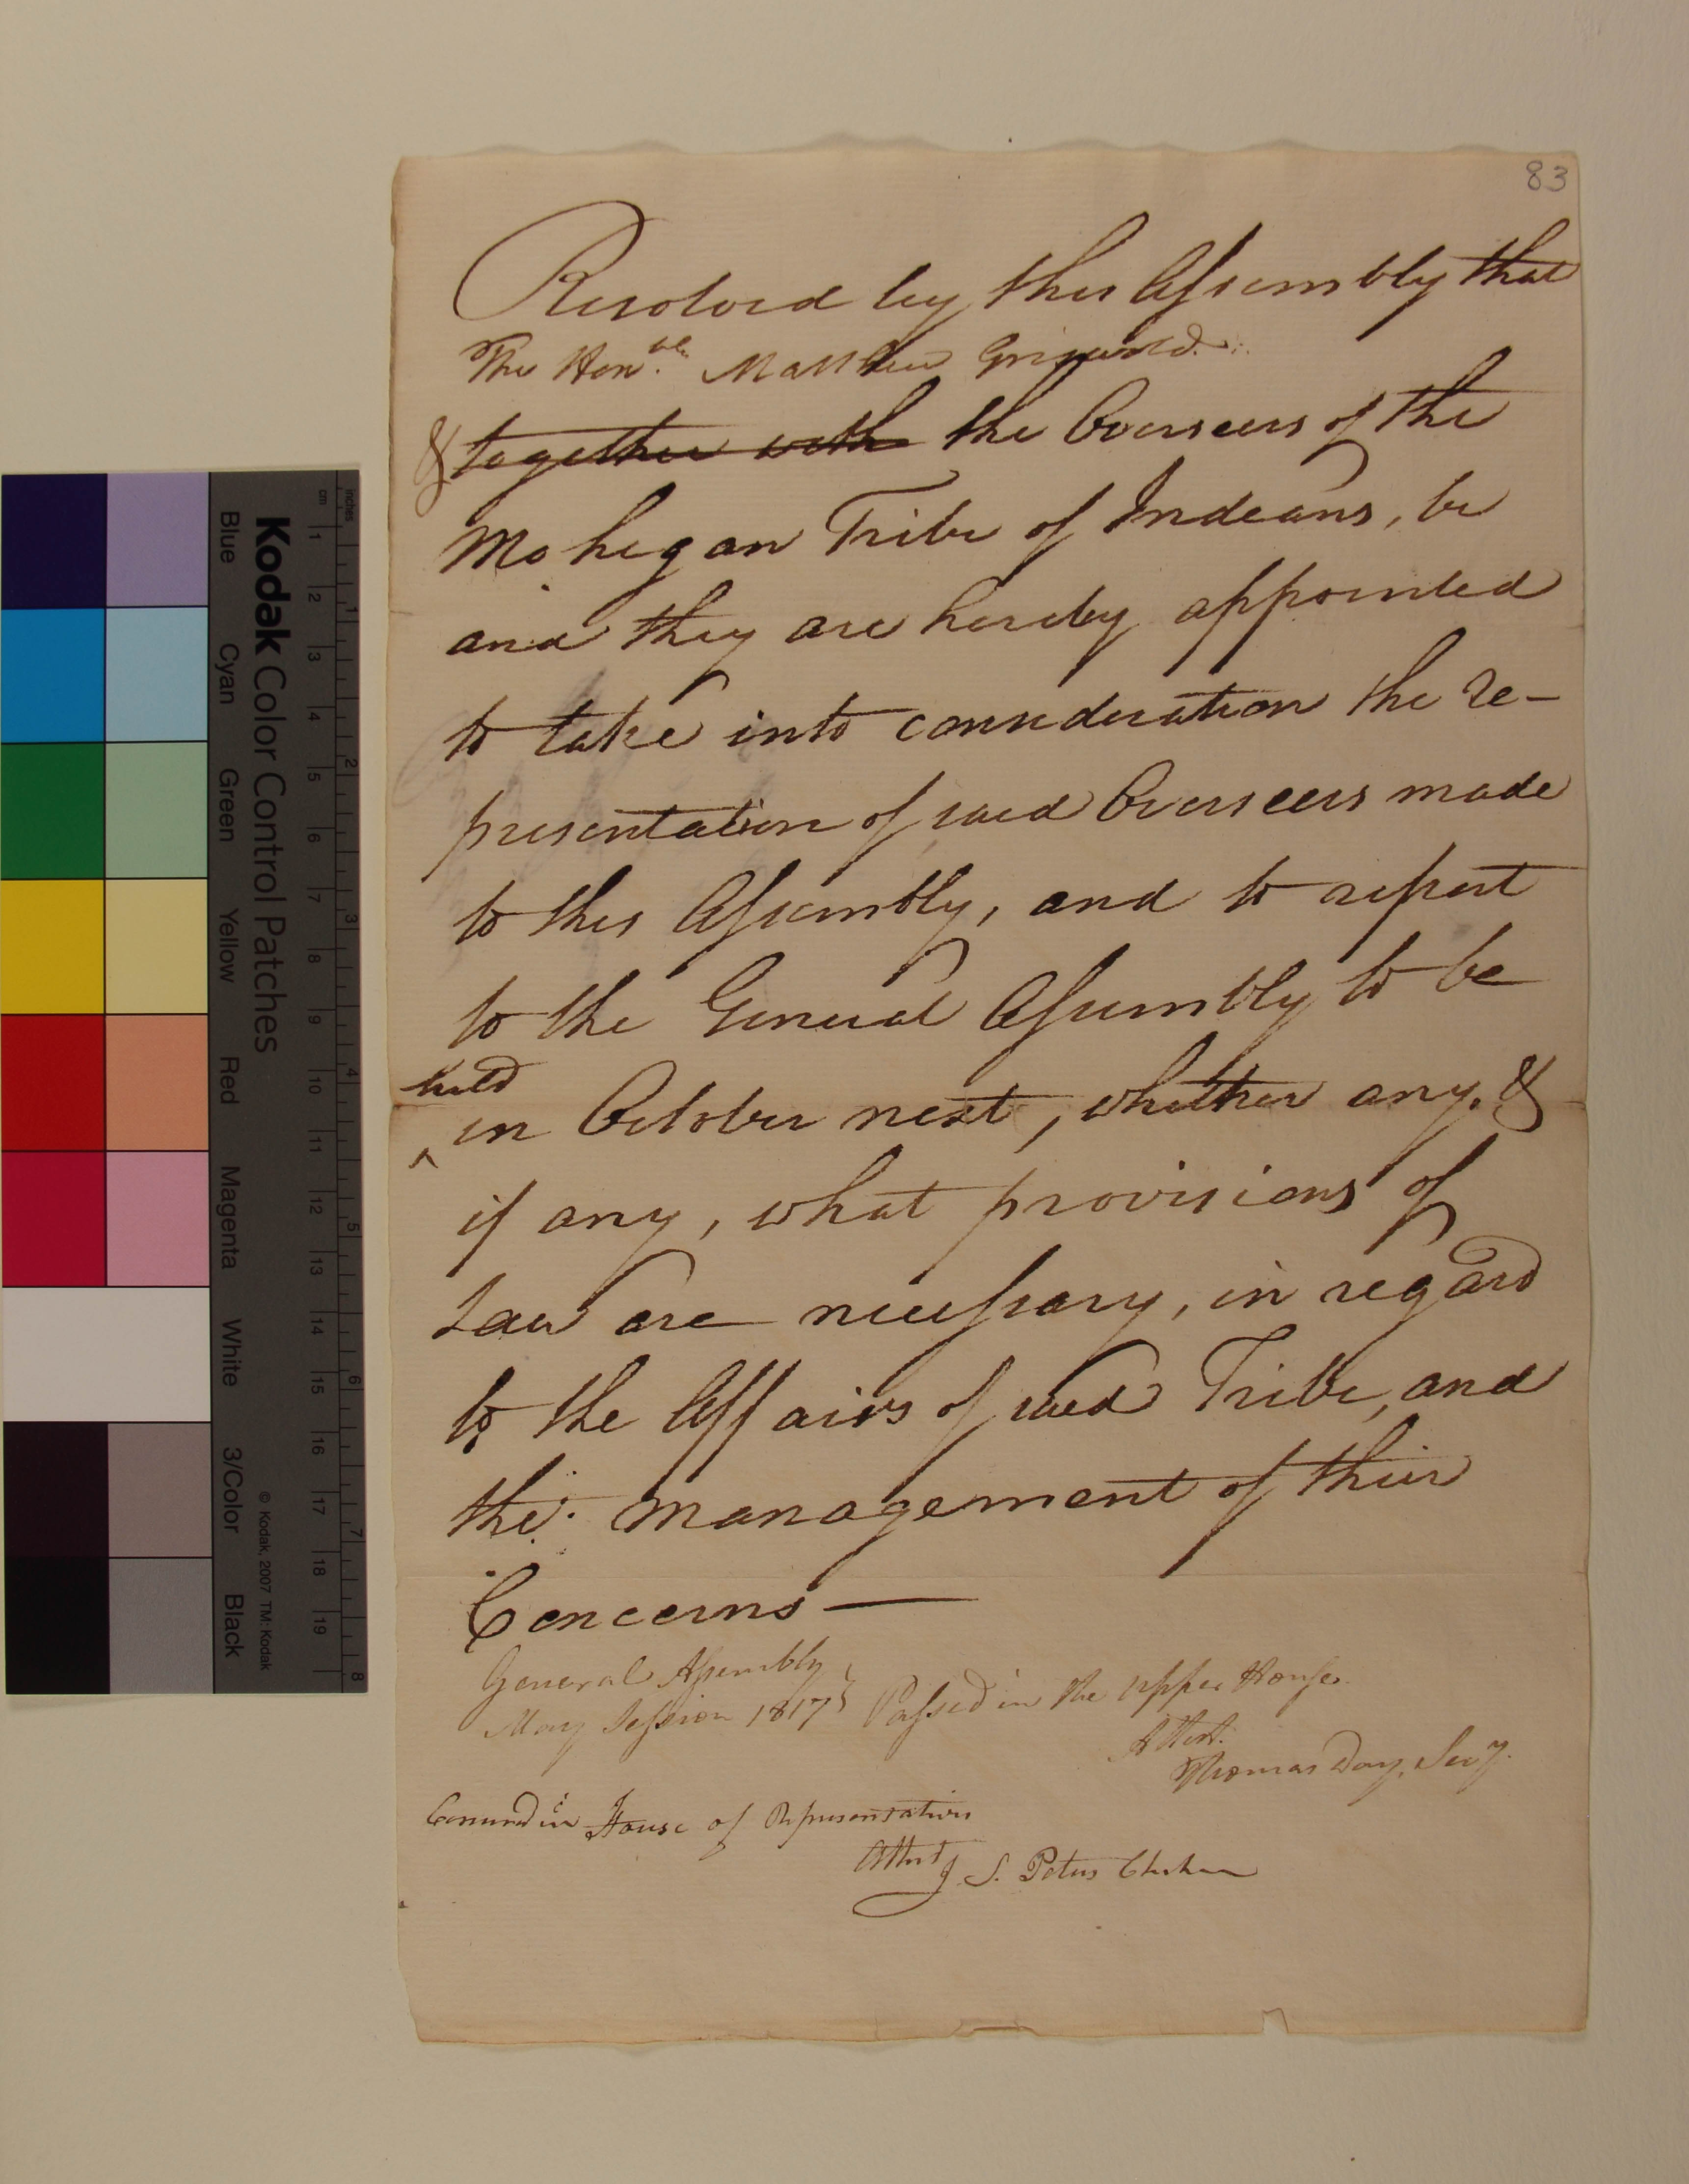 83
Resolved by this Assembly that
The Hon.ble Matthew Griswold
& together with the Overseers of the
Mohegan Tribe of Indians, be
and they are hereby appointed
to take into consideration the re-
presentation of said Overseers made
to this Assembly, and to report
to the General Assembly to be
held
^ in October next, whether any, &
if any, what provisions of
Law are necessary, in regard
to the Affairs of said Tribe, and
the management of their
Concerns —
General Assembly
May Session 1817 } Passed in the Upper House.
Attest.
Thomas Day, Secy.
Concurred in House of Representatives
Attest J. S. Peters Clerk
Kodak Color Control Patches
Blue
Cyan
Green
Yellow
Red
Magenta
White
3/Color
Black
© Kodak, 2007 TM: Kodak
cm 1 2 3 4 5 6 7 8 9 10 11 12 13 14 15 16 17 18 19
inches 1 2 3 4 5 6 7 8